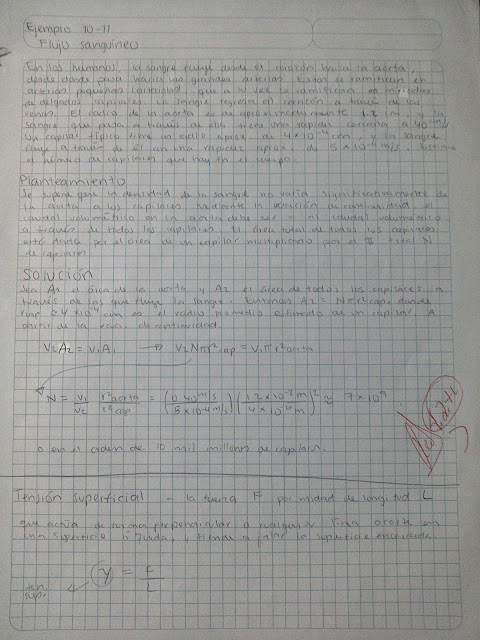 Ejemplo 10-11
Flujo sanguíneo
En los humanos, la sangre fluye desde el corazón hacia la aorta,
desde donde pasa hacia las grandes arterias. Éstas se ramifican en
arterias pequeñas (arteriolas), que a su vez se ramifican en
de delgados capilares. La sangre regresa al corazón a través de las
venas. El radio de la aorta es de aproximadamente 1.2 cm, y la
sangre que pasa a través de ella tiene una rapidez cercana a 40
Un capilar típico tiene un radio aprox. de 4x10⁻⁴ cm, y la sangre
fluye a través de él con una rapidez aprox. de 5x10⁻⁴ m/s.
el número de capilares que hay en el cuerpo.
Planteamiento
Se supone que la densidad de la sangre no varía significativamente de
la aorta a los capilares. Mediante la ecuación de continuidad, el
caudal volumétrico en la aorta debe ser = al caudal volumétrico
a través de todos los capilares. El área total de todos los capilares
está dada por el área de un capilar multiplicado por el total N
de capilares.
Solución
Sea A1 el área de la aorta y A2 el área de todos los capilares a
través de los que fluye la sangre. Entonces A2 = Nπr²cap, donde
rcap ≈ 4x10⁻⁴ cm es el radio promedio estimado de un capilar. A
partir de la ecua. de continuidad.
V2A2 = V1A1 → V2Nπr²cap = V1πr²aorta
N = V1/V2 r²aorta/r²cap = (0.40 m/s / 5x10⁻⁴ m/s) (1.2x10⁻² m / 4x10⁻⁶ m)² ≈ 7x10⁹
o en el orden de 10 mil millones de capilares.
Tensión superficial - la fuerza F por unidad de longitud L
que actúa de forma perpendicular a cualquier línea o corte en
una superficie líquida, y tiende a jalar la superficie
γ = F/L
ten.
sup.